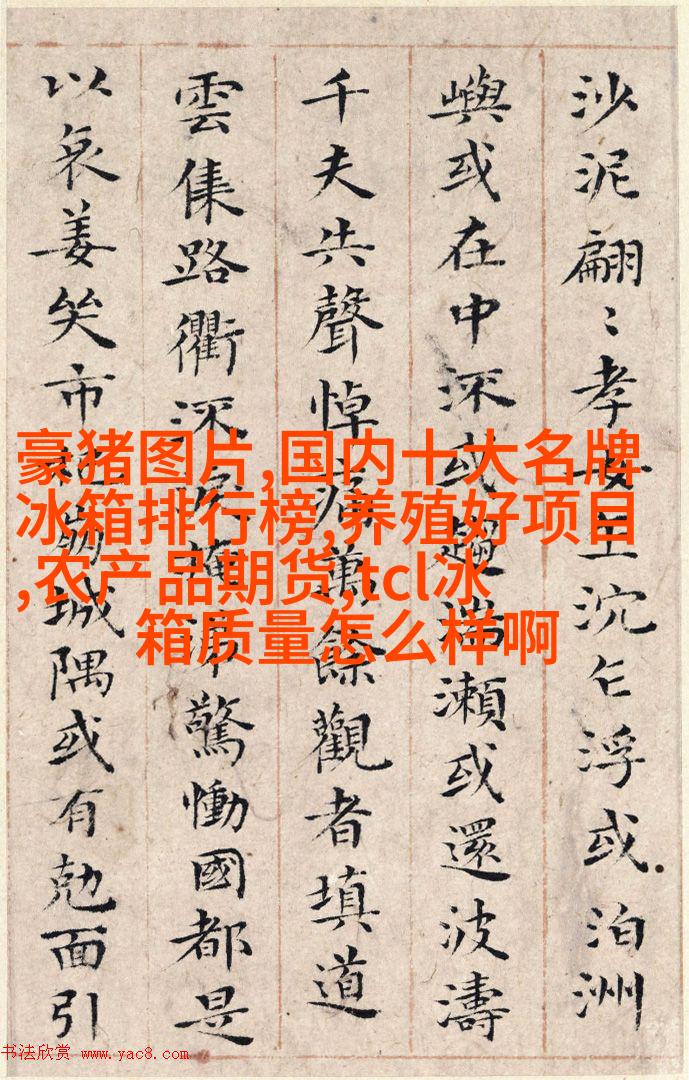 沙泥翩〻孝女乍沉乍浮或泊洲
嶼或在中流或趨湍瀨或還波濤
千夫失聲悼痛萬餘觀者填道
雲集路衢流淚掩涕驚慟國都是
以哀姜哭市杞崩城隅或有尅面引
豪猪图片,国内十大名牌
冰箱排行榜,养殖好项目
,农产品期货,tcl冰
箱质量怎么样啊
书法欣赏 www.yac8.com